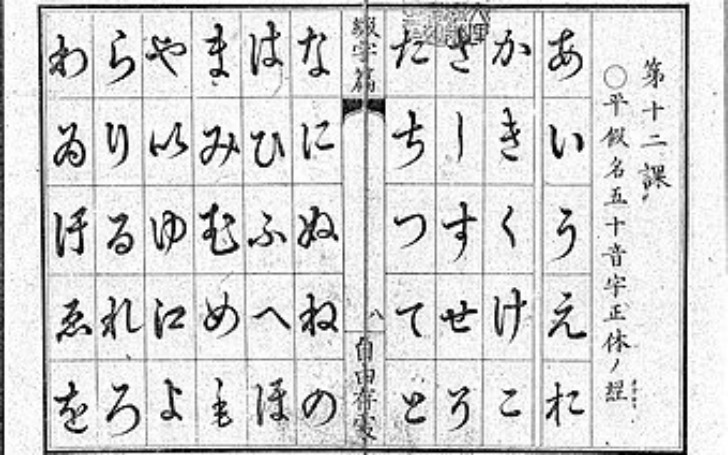 第十二課
○平假名五十音字正体ノ
あいうえお
かきくけこ
さしすせそ
たちつてと
綴字篇
八
なにぬねの
はひふへほ
まみむめも
や以ゆ江よ
らりるれろ
わゐ汙ゑを